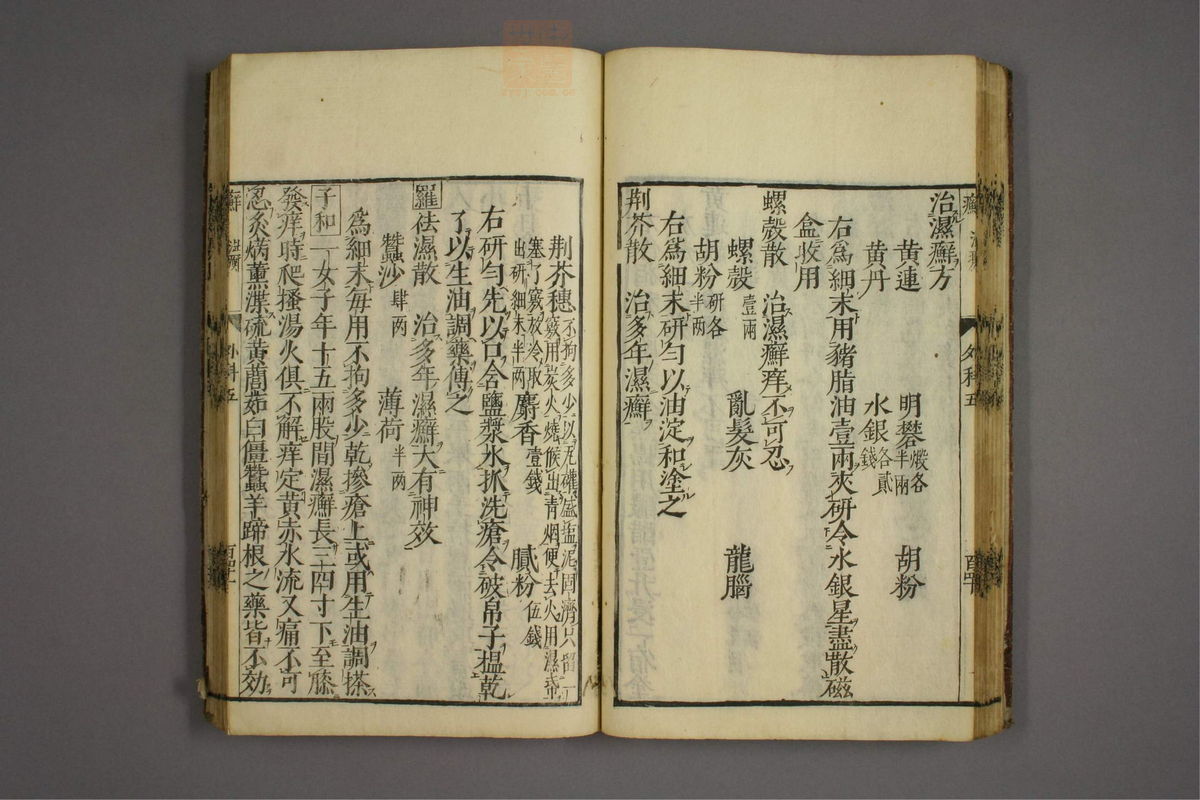 治濕癬方
黄連 明礬煅各半兩 胡粉
黄丹 水銀各貳錢
右爲細末用豬脂油壹兩夾研令水銀星盡散磁
盒收用
螺殼散 治濕癬痒不可忍
螺殼壹兩 亂髮灰 龍腦
胡粉研各半兩
右爲細末研勻以油淀和塗之
荆芥散 治多年濕癬
外科五
荆芥穗不拘多少以瓦罐盛塩泥固濟只留一竅用炭火燒候出青烟便去火用濕紙
塞了竅放冷取出研細末半兩 麝香壹錢 膩粉伍錢
右研勻先以口含鹽漿水抓洗瘡令破帛子揾乾
了以生油調藥傅之
羅祛濕散 治多年濕癬大有神效
蠶沙肆两 薄荷半两
爲細末每用不拘多少乾摻瘡上或用生油調搽
子和一女子年十五兩股間濕癬長三四寸下至膝
發痒時爬搔湯火俱不解痒定黄赤水流又痛不可
忍灸焫薰渫硫黄䕡茹白僵蠶羊蹄根之藥皆不効
癬
外科五